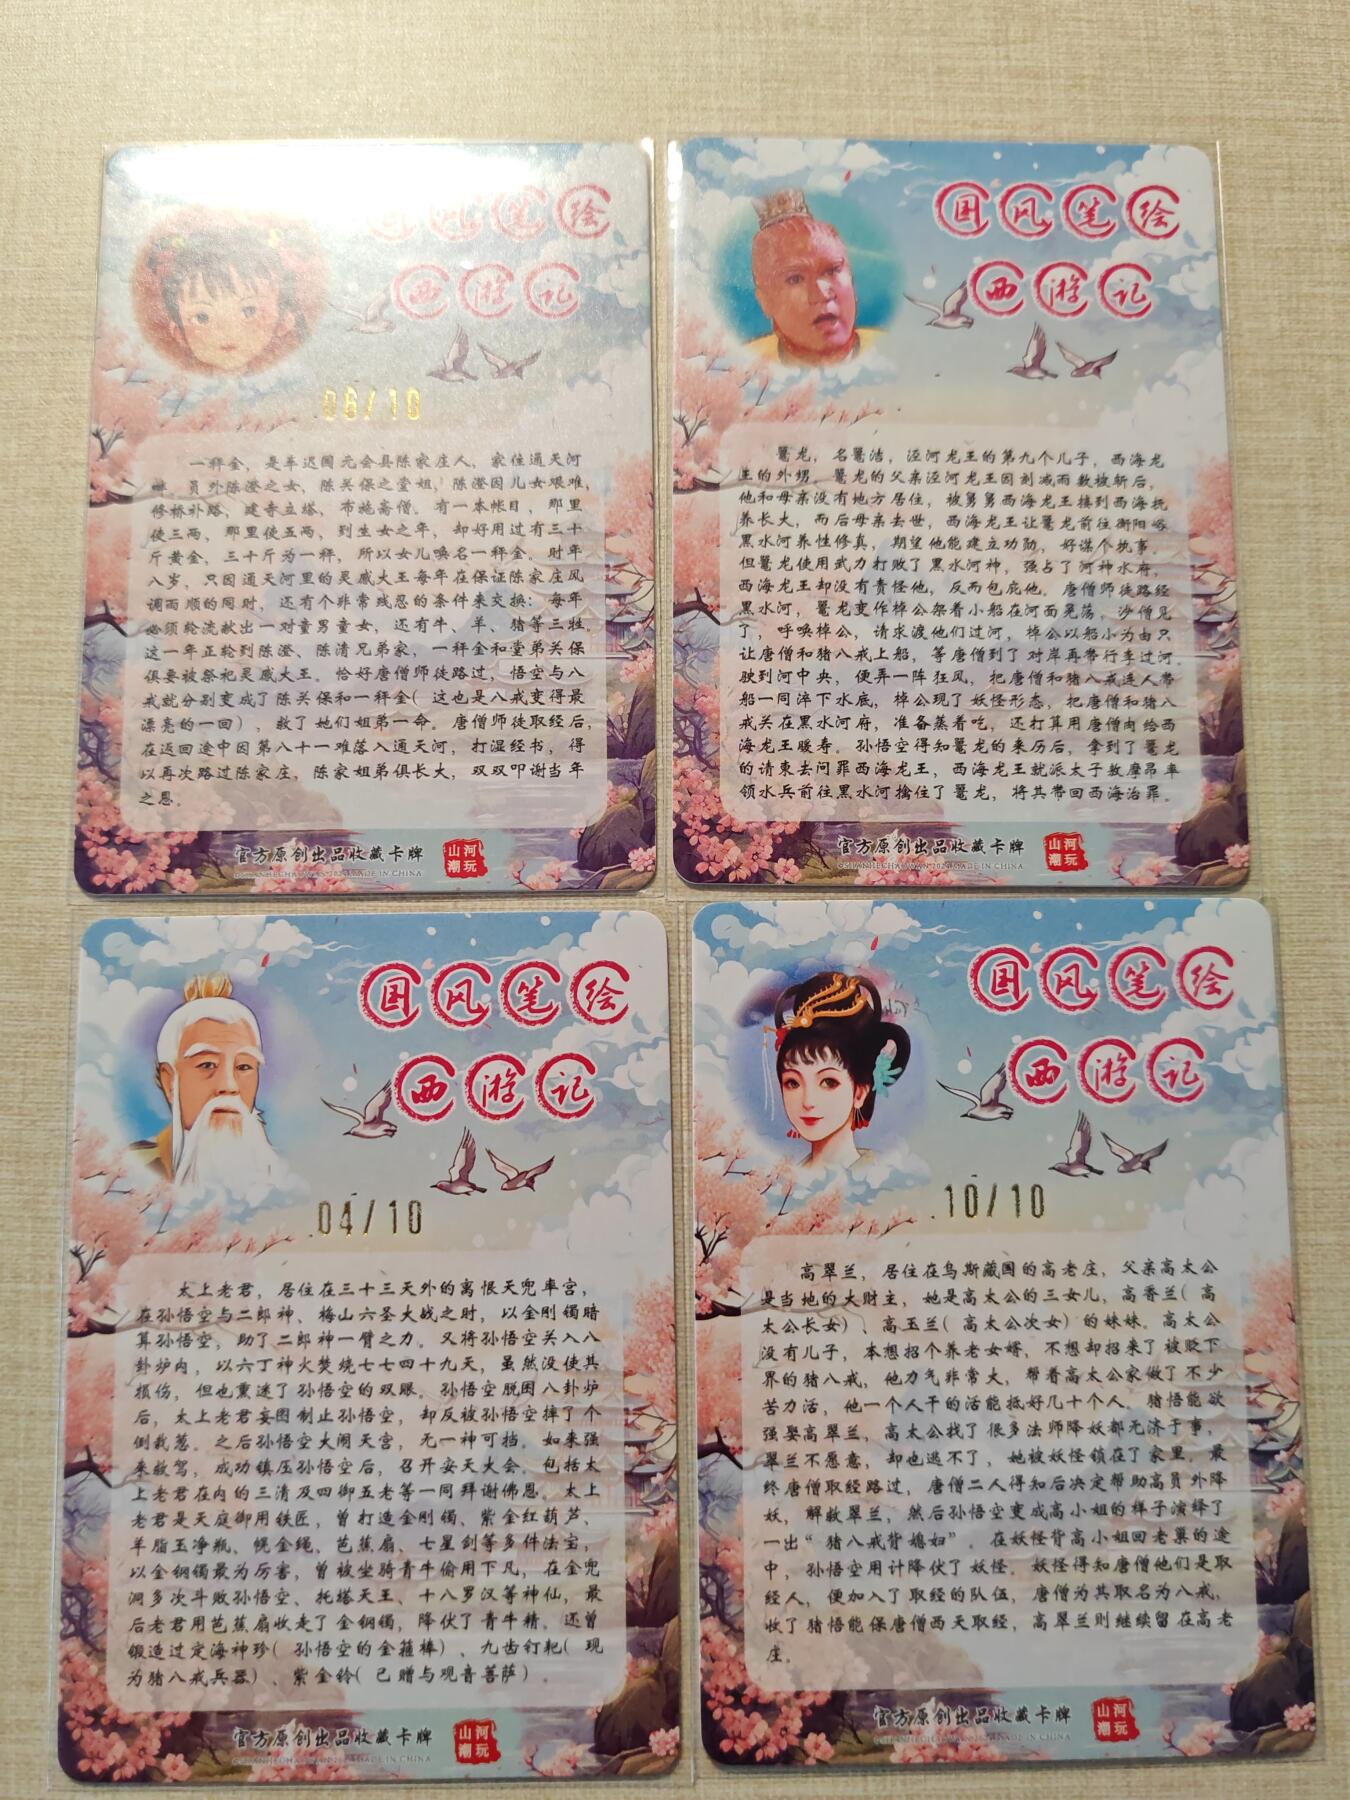 国风笔绘
西游记
06/10
一秤金，是车迟国元会县陈家庄人，家住通天河
畔。员外陈澄之女，陈关保之堂姐，陈澄因儿女艰难，
修桥补路，建寺立塔，布施斋僧。有一本帐目，那里
使三两，那里使五两，到生女之年，却好用过有三十
斤黄金，三十斤为一秤，所以女儿唤名一秤金。时年
八岁，只因通天河里的灵感大王每年在保证陈家庄风
调雨顺的同时，还有个非常残忍的条件来交换：每年
必须轮流献出一对童男童女，还有牛、羊、猪等三牲。
这一年正轮到陈澄、陈清兄弟家，一秤金和堂弟关保
俱要被祭祀灵感大王。恰好唐僧师徒路过，悟空与八
戒就分别变成了陈关保和一秤金（这也是八戒变得最
漂亮的一回），救了她们姐弟一命。唐僧师徒取经后，
在返回途中因第八十一难落入通天河，打湿经书，得
以再次路过陈家庄，陈家姐弟俱长大，双双叩谢当年
之恩。
官方原创出品收藏卡牌
山河潮玩
国风笔绘
西游记
鼍龙，名鼍洁，泾河龙王的第九个儿子，西海龙
王的外甥。鼍龙的父亲泾河龙王因刻减雨数被斩后，
他和母亲没有地方居住，被舅舅西海龙王接到西海抚
养长大，而后母亲去世，西海龙王让鼍龙前往衡阳峪
黑水河养性修真，期望他能建立功勋，好谋个执事。
但鼍龙使用武力打败了黑水河神，强占了河神水府，
西海龙王却没有责怪他，反而包庇他。唐僧师徒路经
黑水河，鼍龙变作棹公架着小船在河面晃荡，沙僧见
了，呼唤棹公，请求渡他们过河，棹公以船小为由只
让唐僧和猪八戒上船，等唐僧到了对岸再带行李过河。
驶到河中央，便弄一阵狂风，把唐僧和猪八戒连人带
船一同淬下水底，棹公现了妖怪形态，把唐僧和猪八
戒关在黑水河府，准备蒸着吃，还打算用唐僧肉给西
海龙王暖寿。孙悟空得知鼍龙的来历后，拿到了鼍龙
的请柬去问罪西海龙王，西海龙王就派太子敖摩昂率
领水兵前往黑水河擒住了鼍龙，将其带回西海治罪。
官方原创出品收藏卡牌
山河潮玩
国风笔绘
西游记
04/10
太上老君，居住在三十三天外的离恨天兜率宫，
在孙悟空与二郎神、梅山六圣大战之时，以金刚镯暗
算孙悟空，助了二郎神一臂之力。又将孙悟空关入八
卦炉内，以六丁神火焚烧七七四十九天，虽然没使其
损伤，但也熏迷了孙悟空的双眼。孙悟空脱困八卦炉
后，太上老君妄图制止孙悟空，却反被孙悟空摔了个
倒栽葱。之后孙悟空大闹天宫，无一神可挡。如来强
来救驾，成功镇压孙悟空后，召开安天大会。包括太
上老君在内的三清及四御五老等一同拜谢佛恩。太上
老君是天庭御用铁匠，曾打造金刚镯、紫金红葫芦、
羊脂玉净瓶、幌金绳、芭蕉扇、七星剑等多件法宝，
以金钢镯最为厉害，曾被坐骑青牛偷用下凡，在金兜
洞多次斗败孙悟空、托塔天王、十八罗汉等神仙，最
后老君用芭蕉扇收走了金钢镯，降伏了青牛精。还曾
锻造过定海神珍（孙悟空的金箍棒）、九齿钉耙（现
为猪八戒兵器）、紫金铃（已赠与观音菩萨）。
官方原创出品收藏卡牌
山河潮玩
国风笔绘
西游记
10/10
高翠兰，居住在乌斯藏国的高老庄，父亲高太公
是当地的大财主，她是高太公的三女儿，高香兰（高
太公长女）、高玉兰（高太公次女）的妹妹。高太公
没有儿子，本想招个养老女婿，不想却招来了被贬下
界的猪八戒，他力气非常大，帮着高太公家做了不少
苦力活，他一个人干的活能抵好几十个人。猪悟能欲
强娶高翠兰，高太公找了很多法师降妖都无济于事，
翠兰不愿意，却也逃不了，她被妖怪锁在了家里。最
终唐僧取经路过，唐僧二人得知后决定帮助高员外降
妖，解救翠兰，然后孙悟空变成高小姐的样子演绎了
一出“猪八戒背媳妇”。在妖怪背高小姐回老巢的途
中，孙悟空用计降伏了妖怪。妖怪得知唐僧他们是取
经人，便加入了取经的队伍，唐僧为其取名为八戒，
收了猪悟能保唐僧西天取经，高翠兰则继续留在高老
庄。
官方原创出品收藏卡牌
山河潮玩